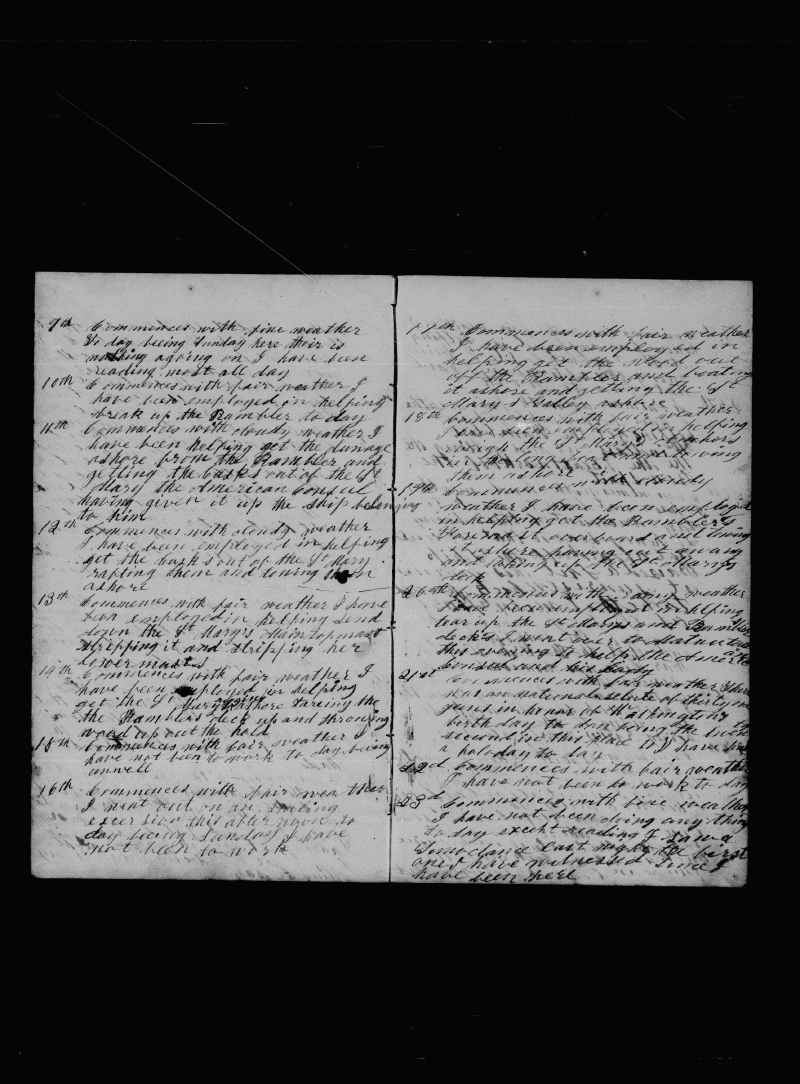 9th Commences with fine weather
To day being Sunday here their is
nothing agoing on I have been
reading most all day
10th Commences with fair weather I
have been employed in helping
break up the Rambler to day
11th Commences with cloudy weather I
have been helping get the dunage
ashore from the Rambler and
getting the Casks out of the St
Mary the American Consul
having given it up the ship belonging
to him
12th Commences with cloudy weather
I have been employed in helping
get the Casks out of the St Mary
rafting them and towing them
ashore
13th Commences with fair weather I have
been employed in helping send
down the St Mary's Main topmast
stripping it and stripping her
lower masts
14th Commences with fair weather I
have been employed in helping
get the St Mary's rigging ashore tareing the
the Ramblers deck up and throwing
wood up out the hold
15th Commences with fair weather I
have not been to work to day being
unwell
16th Commences with fair weather
I went out on an
excersion this after noon to
day being Sunday I have
not been to work
17th Commences with fair weather
I have been employed in
helping get the wood out
off the Rambler and boating
it ashore and getting the St
Mary's Galley ashore
18th Commences with fair weather
I have been employed in helping
the St Mary's anchors
in a long boat and towing
them ashore
19th Commences with
weather I have been employed
in helping get the Rambler's
Foremast overboard and towing
it ashore having cut away
and taking up the St Marys
deck
20th Commences with rainy weather
I have been employed in helping
tear up the St Marys and Rambler
decks I went over to
this evening to help the American
Consul and his
21st Commences with fair weather there
was an national salute of thirty one
guns in honor of Washington's
birth day to day being the twenty
second in this place I have had
a holoday to day
22d Commences with fair weather
I have not been to work to day
23d Commences with fine weather
I have not been doing any thing
to day except reading I saw a
dance last night the first
one I have witnessed since I
have been here